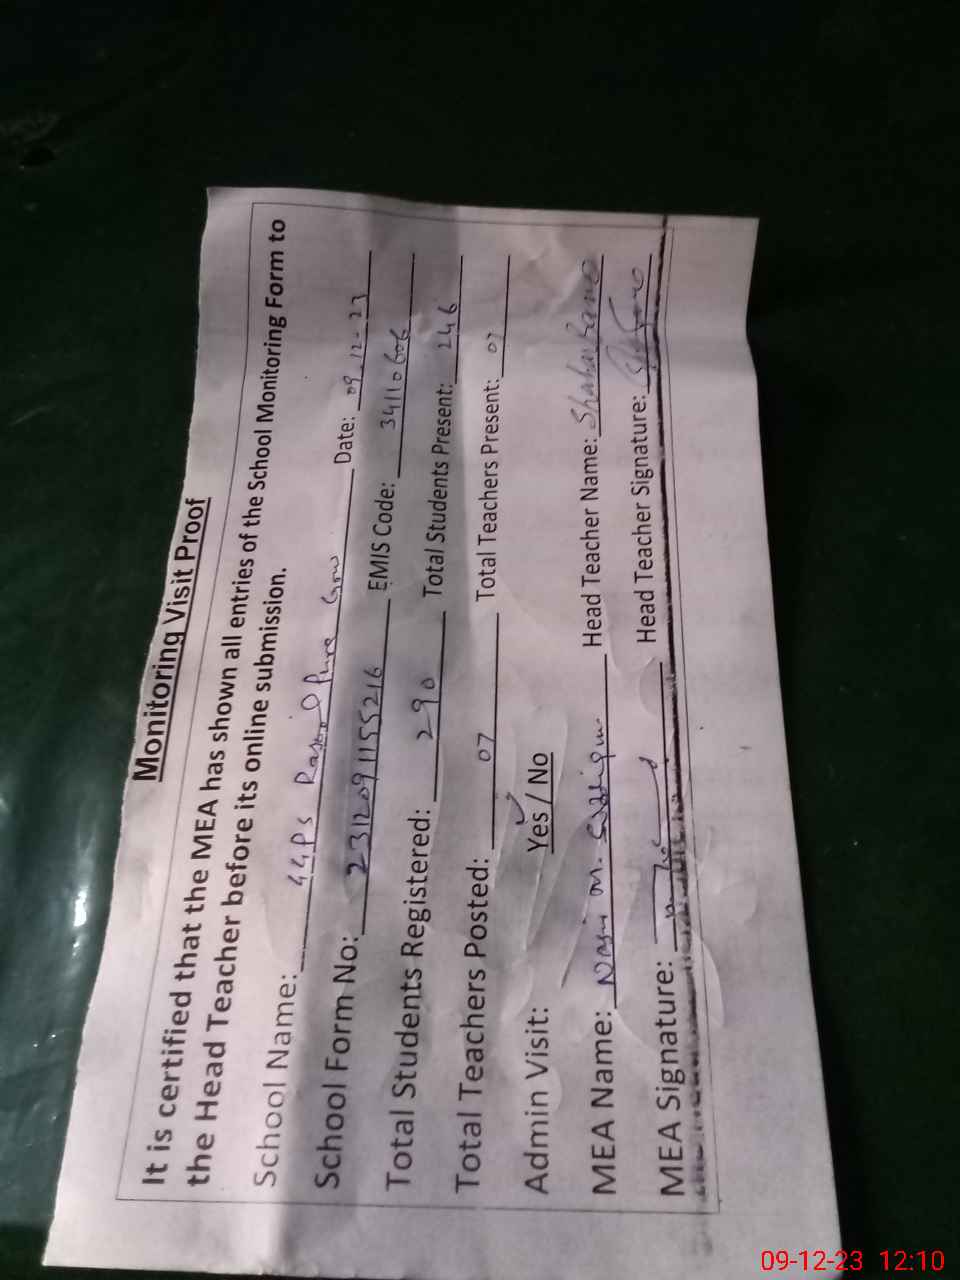 Monitoring Visit Proof
It is certified that the MEA has shown all entries of the School Monitoring Form to
the Head Teacher before its online submission.
School Name: GGPS Rasool Pura Date: 09.12-23
School Form No: 2312091155216 EMIS Code: 34110606
Total Students Registered: 290 Total Students Present: 246
Total Teachers Posted: 07 Total Teachers Present: 07
Admin Visit: Yes / No
MEA Name: Head Teacher Name:
MEA Signature: Head Teacher Signature:
09-12-23 12:10